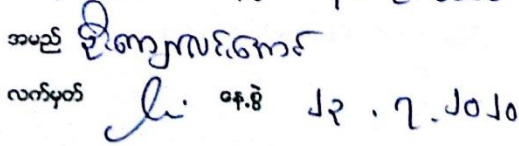 အမည် ဦးကျော်လင်းအောင်
လက်မှတ် နေ့စွဲ ၂၃.၇.၂၀၂၀